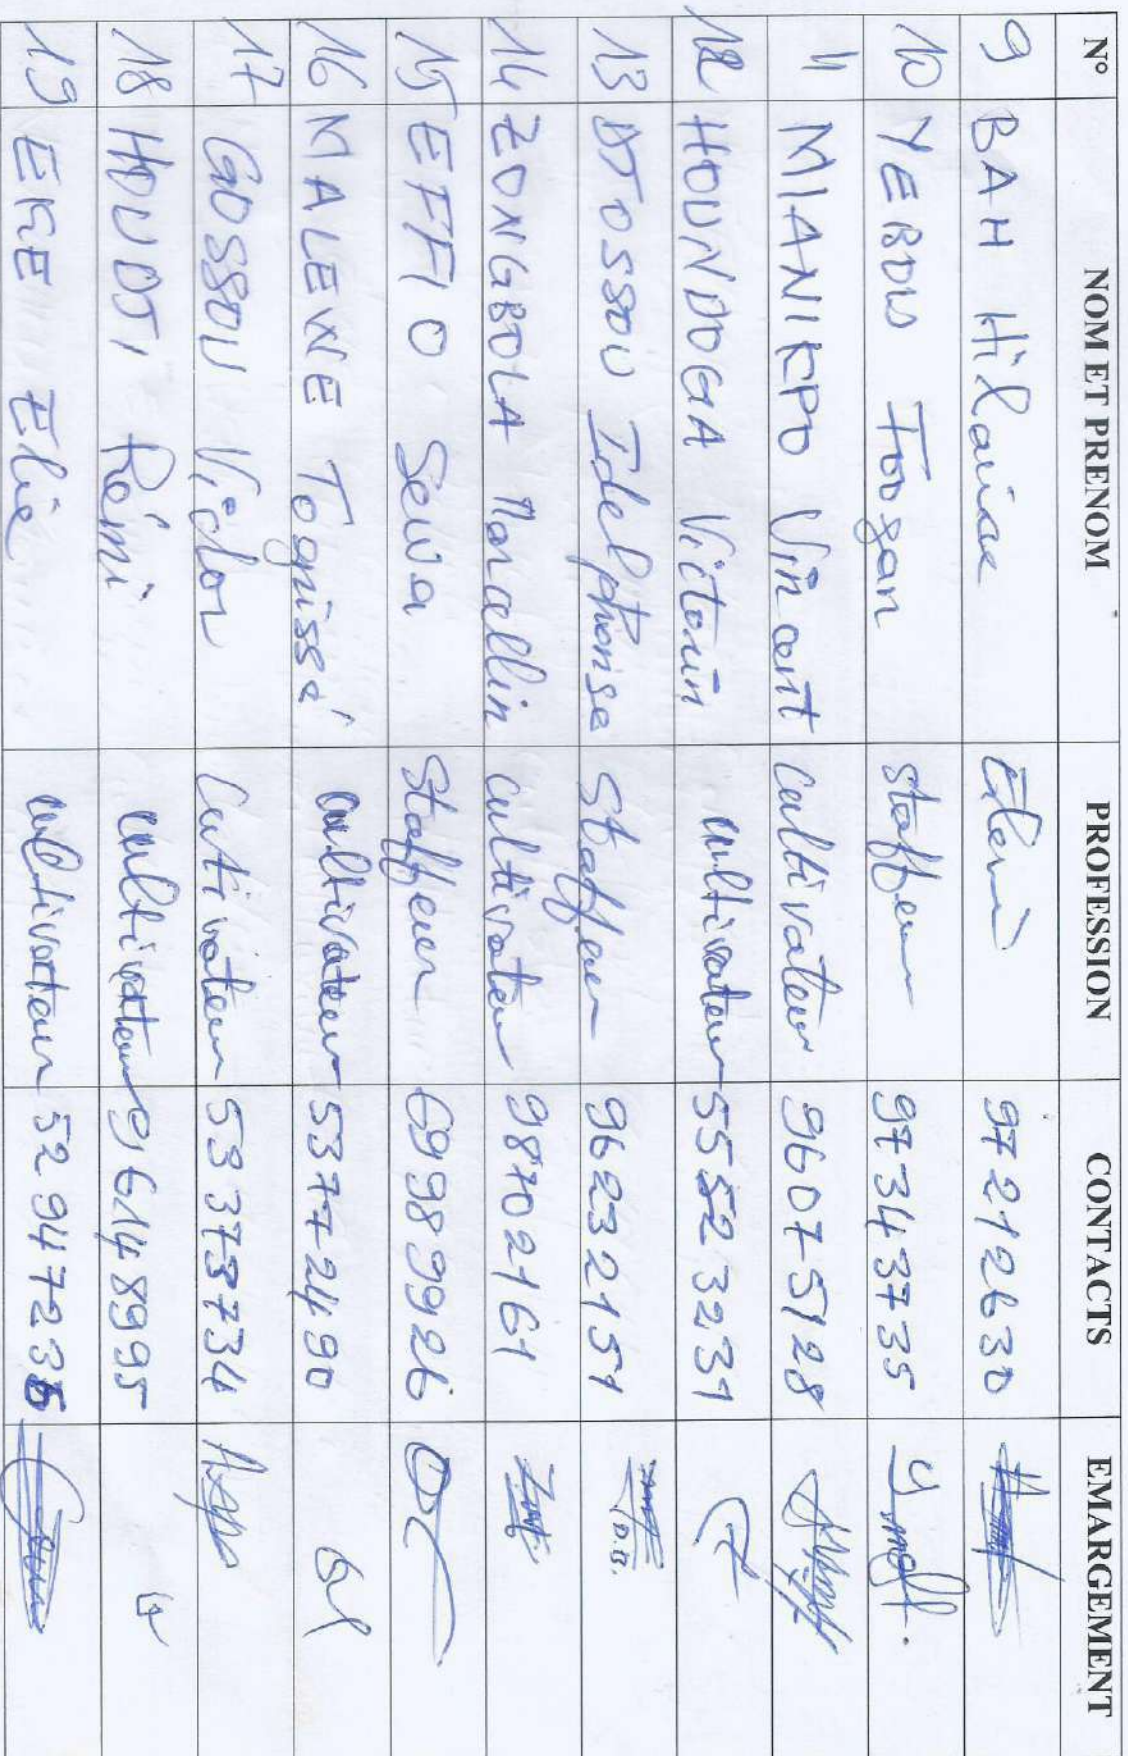 N° NOM ET PRENOM PROFESSION CONTACTS EMARGEMENT
9 BAH Hilaire 97212630
10 YEBOU Toogan staffeur 97343735
11 MIANIKPO Vincent Cultivateur 96075128
12 HOUNDOGA Victorin cultivateur 55523231
13 DTOSSOU Idelphonse Staffeur 96232151
14 ZONGBOLA Marcellin cultivateur 98702161
15 EFFIO Sewa Staffeur 69989926
16 MALEWE Tognissé cultivateur 53772490
17 GOSSOU Victor Cutivateur 53373734
18 HOUDJI Rémi cultivateur 96148995
19 EKE Elie cultivateur